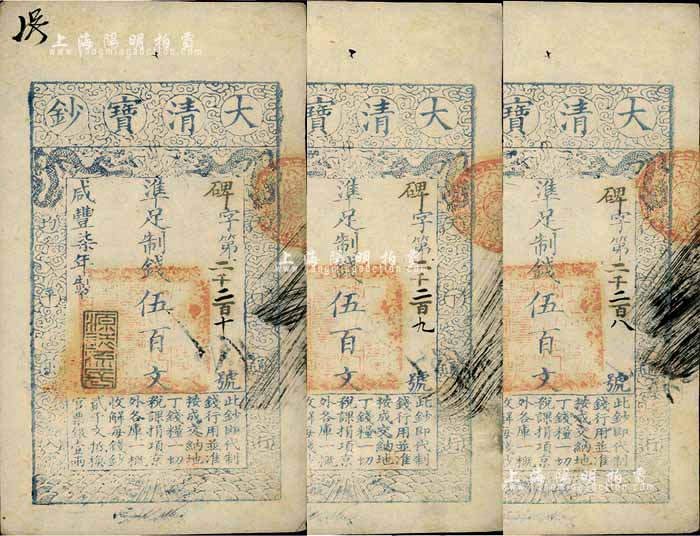 上海陽明拍賣
www.yangmingauction.com
大清寶鈔
碑字第二千二百十號
準足制錢伍百文
咸豐柒年製
此鈔即代制
錢行用並准
按成交納地
丁錢糧一切
稅課捐項京
外各庫一概
收解每錢鈔
貳千文抵換
官票銀壹兩
大清寶
碑字第二千二百九號
準足制錢伍百文
此鈔即代制
錢行用並准
按成交納地
丁錢糧一切
稅課捐項京
外各庫一概
收解每錢鈔
大清寶
碑字第二千二百八號
準足制錢伍百文
此鈔即代制
錢行用並准
按成交納地
丁錢糧一切
稅課捐項京
外各庫一概
收解每錢鈔
上海陽明拍賣
www.yangmingauction.com
上海陽明拍賣
www.yangmingauction.com